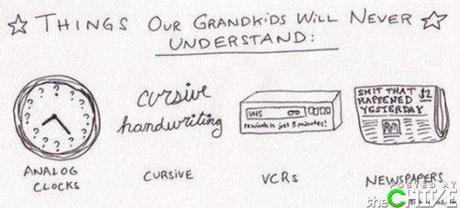 ☆ THINGS OUR GRANDKIDS WILL NEVER ☆
UNDERSTAND:
? ? ? ? ? ? ? ? ? ? ? ?
ANALOG
CLOCKS
cursive
handwriting
CURSIVE
VHS
rewinds in just 8 minutes!
VCRs
SHIT THAT $2
HAPPENED
YESTERDAY
NEWSPAPERS
POSTED AT
theCHIVE